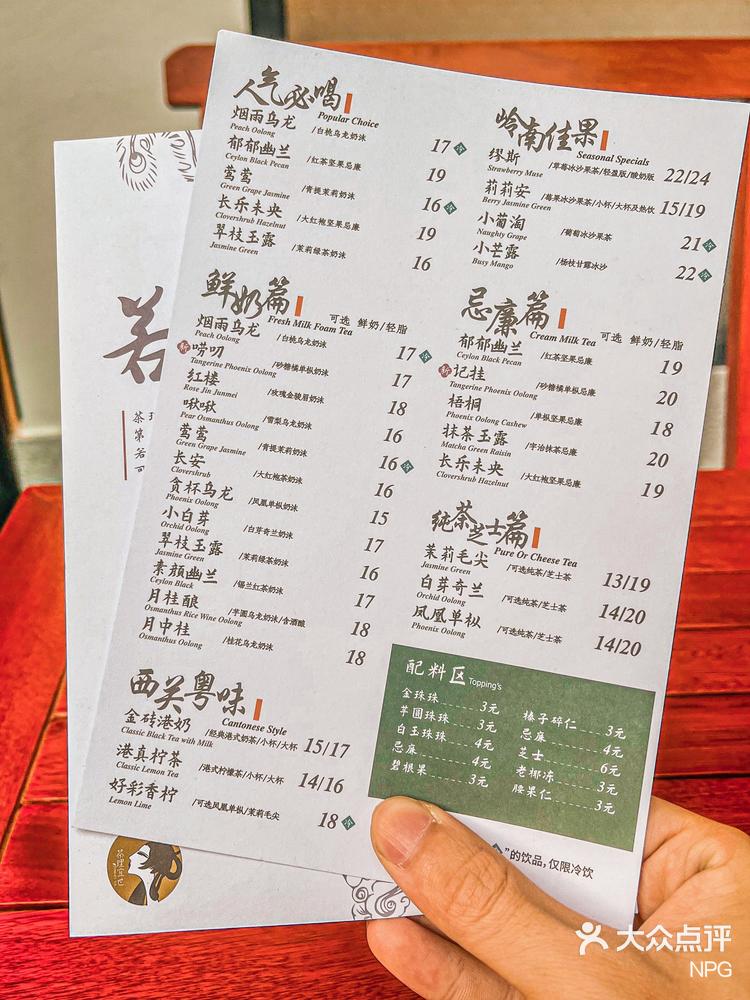 人气必喝
Popular Choice
烟雨乌龙 /白桃乌龙奶沫 17 冷
Peach Oolong
郁郁幽兰 /红茶坚果忌廉 19
Ceylon Black Pecan
莺莺 /青提茉莉奶沫 16 冷
Green Grape Jasmine
长乐未央 /大红袍坚果忌廉 19
Clovershrub Hazelnut
翠枝玉露 /茉莉绿茶奶沫 16
Jasmine Green
鲜奶篇
Fresh Milk Foam Tea 可选 鲜奶/轻脂
烟雨乌龙 /白桃乌龙奶沫 17 冷
Peach Oolong
新 唠叨 /砂糖橘单枞奶沫 17
Tangerine Phoenix Oolong
红楼 /玫瑰金骏眉奶沫 18
Rose Jin Junmei
啾啾 /雪梨乌龙奶沫 16
Pear Osmanthus Oolong
莺莺 /青提茉莉奶沫 16 冷
Green Grape Jasmine
长安 /大红袍茶奶沫 16
Clovershrub
贪杯乌龙 /凤凰单枞奶沫 15
Phoenix Oolong
小白芽 /白芽奇兰奶沫 17
Orchid Oolong
翠枝玉露 /茉莉绿茶奶沫 16
Jasmine Green
素颜幽兰 /锡兰红茶奶沫 17
Ceylon Black
月桂酿 /芋圆乌龙奶沫/含酒酿 18
Osmanthus Rice Wine Oolong
月中桂 /桂花乌龙奶沫 18
Osmanthus Oolong
西关粤味
Cantonese Style
金砖港奶 /经典港式奶茶/小杯/大杯 15/17
Classic Black Tea with Milk
港真柠茶 /港式柠檬茶/小杯/大杯 14/16
Classic Lemon Tea
好彩香柠 /可选凤凰单枞/茉莉毛尖 18 冷
Lemon Lime
岭南佳果
Seasonal Specials
缪斯 /草莓冰沙果茶/轻盈版/酸奶版 22/24
Strawberry Muse
莉莉安 /莓果冰沙果茶/小杯/大杯及热饮 15/19
Berry Jasmine Green
小葡萄 /葡萄冰沙果茶 21 冷
Naughty Grape
小芒露 /杨枝甘露冰沙 22 冷
Busy Mango
忌廉篇
Cream Milk Tea 可选 鲜奶/轻脂
郁郁幽兰 /红茶坚果忌廉 19
Ceylon Black Pecan
新 记挂 /砂糖橘单枞忌廉 20
Tangerine Phoenix Oolong
梧桐 /单枞坚果忌廉 18
Phoenix Oolong Cashew
抹茶玉露 /宇治抹茶忌廉 20
Matcha Green Raisin
长乐未央 /大红袍坚果忌廉 19
Clovershrub Hazelnut
纯茶芝士篇
Pure Or Cheese Tea
茉莉毛尖 /可选纯茶/芝士茶 13/19
Jasmine Green
白芽奇兰 /可选纯茶/芝士茶 14/20
Orchid Oolong
凤凰单枞 /可选纯茶/芝士茶 14/20
Phoenix Oolong
配料区 Topping's
金珠珠 3元
芋圆珠珠 3元
白玉珠珠 4元
忌廉 4元
碧根果 3元
榛子碎仁 3元
忌廉 4元
芝士 6元
老椰冻 3元
腰果仁 3元
”的饮品,仅限冷饮
若
茶理宜世
大众点评
NPG